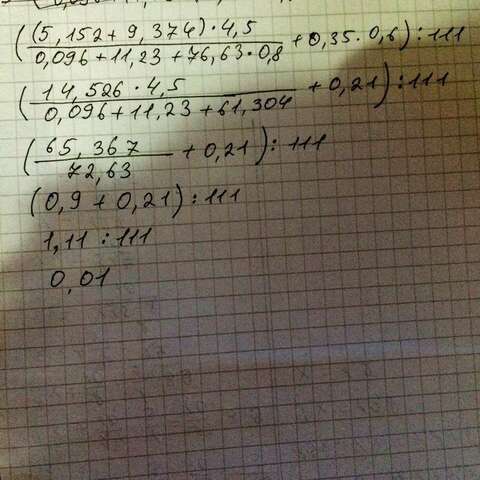 ((5,152+9,374)·4,5)/(0,096+11,23+76,63·0,8) + 0,35·0,6) : 111
(14,526·4,5)/(0,096+11,23+61,304) + 0,21) : 111
(65,367/72,63 + 0,21) : 111
(0,9 + 0,21) : 111
1,11 : 111
0,01